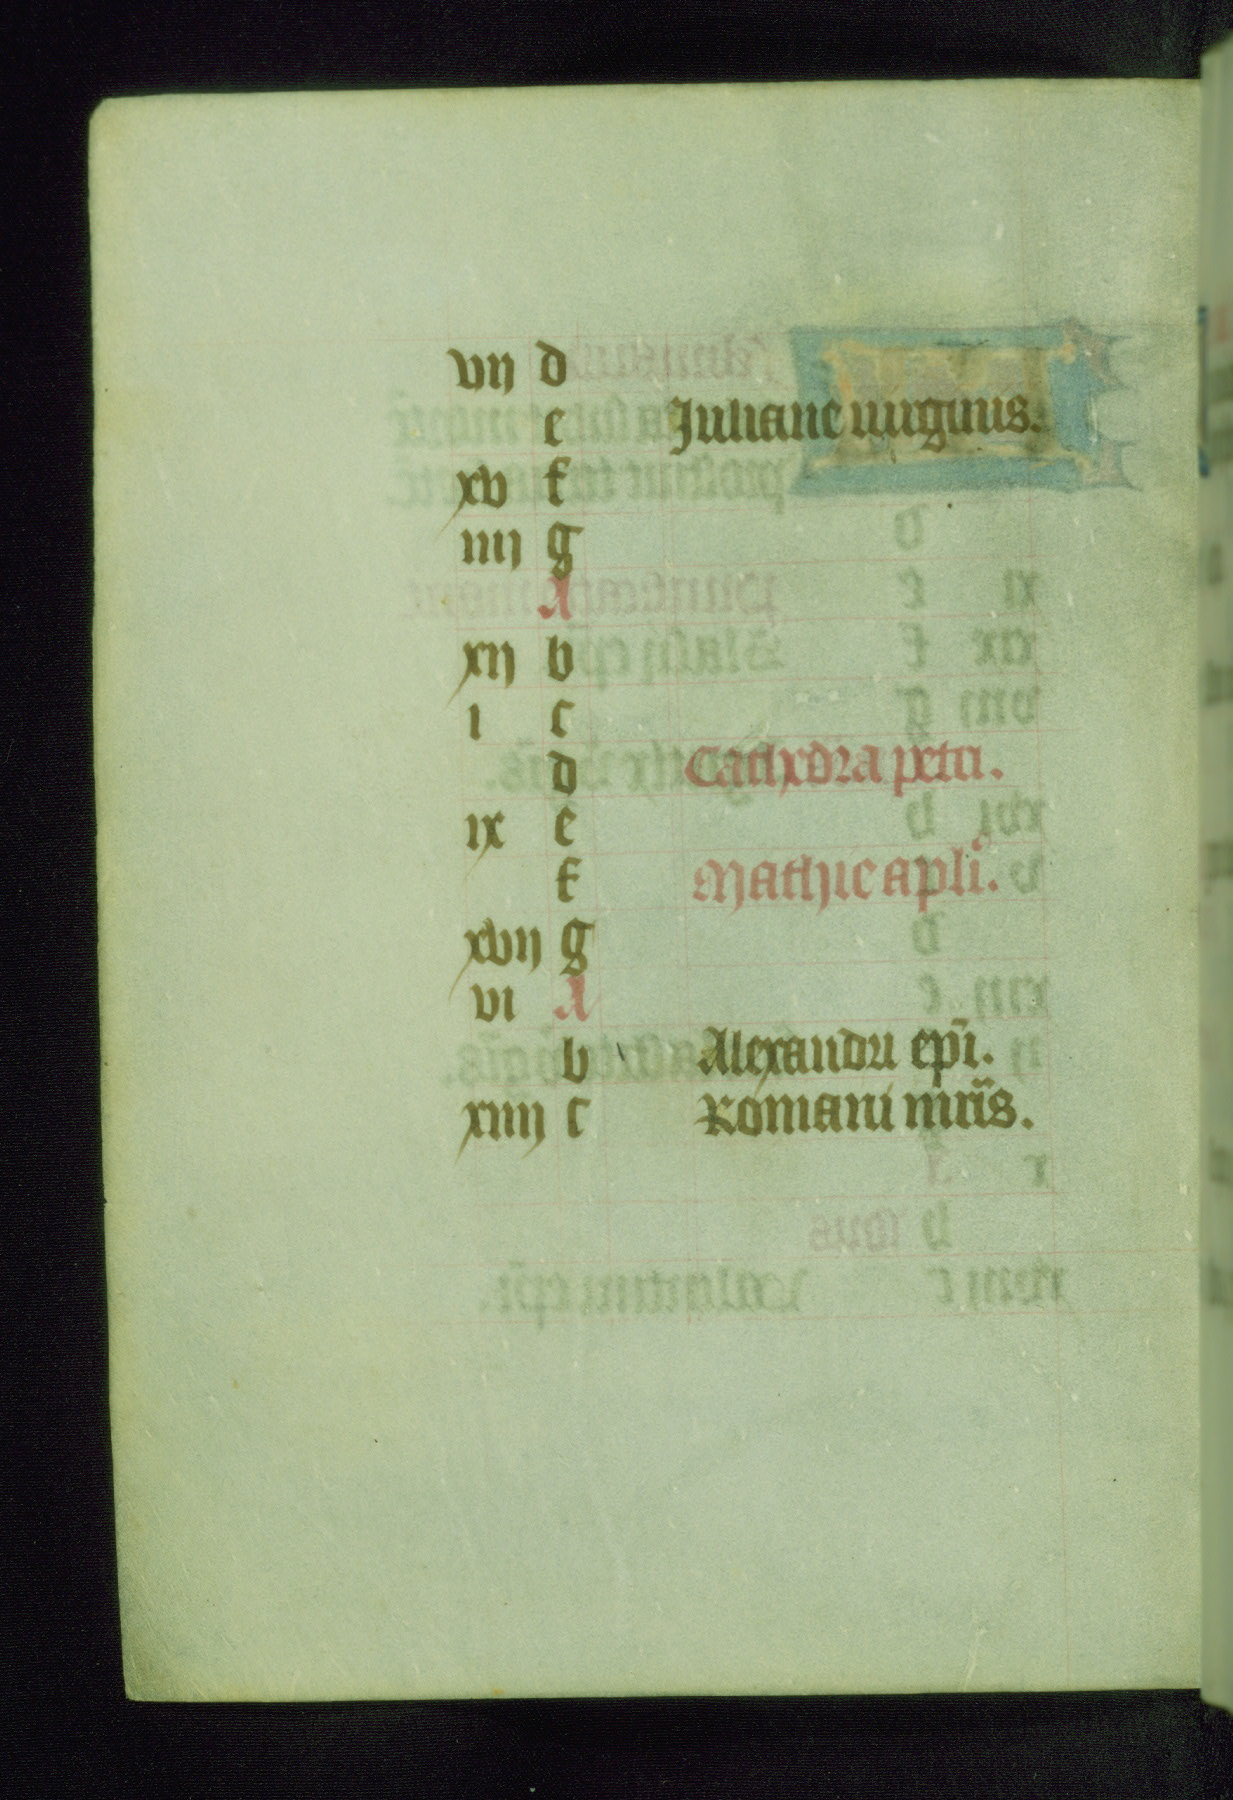 vij d
e Juliane uirginis.
xv f
iiij g
A
xij b
i c
d Cathedra petri.
ix e
f Mathie apli.
xvij g
vi A
b Alexandri epi.
xiiij c Romani mris.